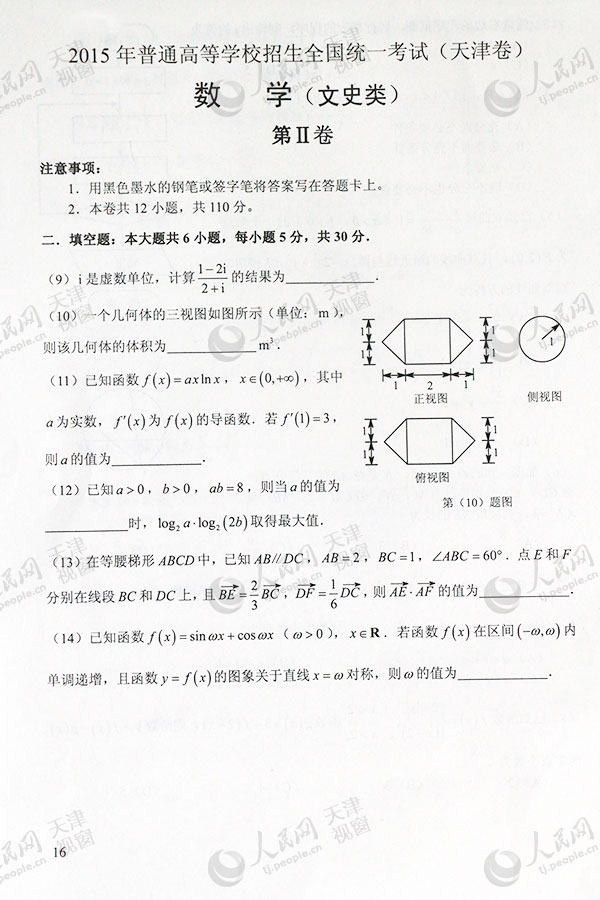 2015年普通高等学校招生全国统一考试（天津卷）
数 学（文史类）
第Ⅱ卷
注意事项：
1．用黑色墨水的钢笔或签字笔将答案写在答题卡上。
2．本卷共12小题，共110分。
二．填空题：本大题共6小题，每小题5分，共30分．
（9）i是虚数单位，计算 (1−2i)/(2+i) 的结果为____________．
（10）一个几何体的三视图如图所示（单位：m），
则该几何体的体积为____________m³．
（11）已知函数 f(x)=ax ln x，x∈(0,+∞)，其中
a为实数，f′(x)为f(x)的导函数．若f′(1)=3，
则a的值为____________．
（12）已知a>0，b>0，ab=8，则当a的值为
____________时，log₂ a·log₂(2b)取得最大值．
1
1
1
2
1
正视图
1
侧视图
1
1
俯视图
第（10）题图
（13）在等腰梯形ABCD中，已知AB∥DC，AB=2，BC=1，∠ABC=60°．点E和F
分别在线段BC和DC上，且 BE→=2/3 BC→，DF→=1/6 DC→，则 AE→·AF→ 的值为____________．
（14）已知函数f(x)=sin ωx+cos ωx（ω>0），x∈R．若函数f(x)在区间(−ω,ω)内
单调递增，且函数y=f(x)的图象关于直线x=ω对称，则ω的值为____________．
16
人民网 天津视窗
tj.people.cn